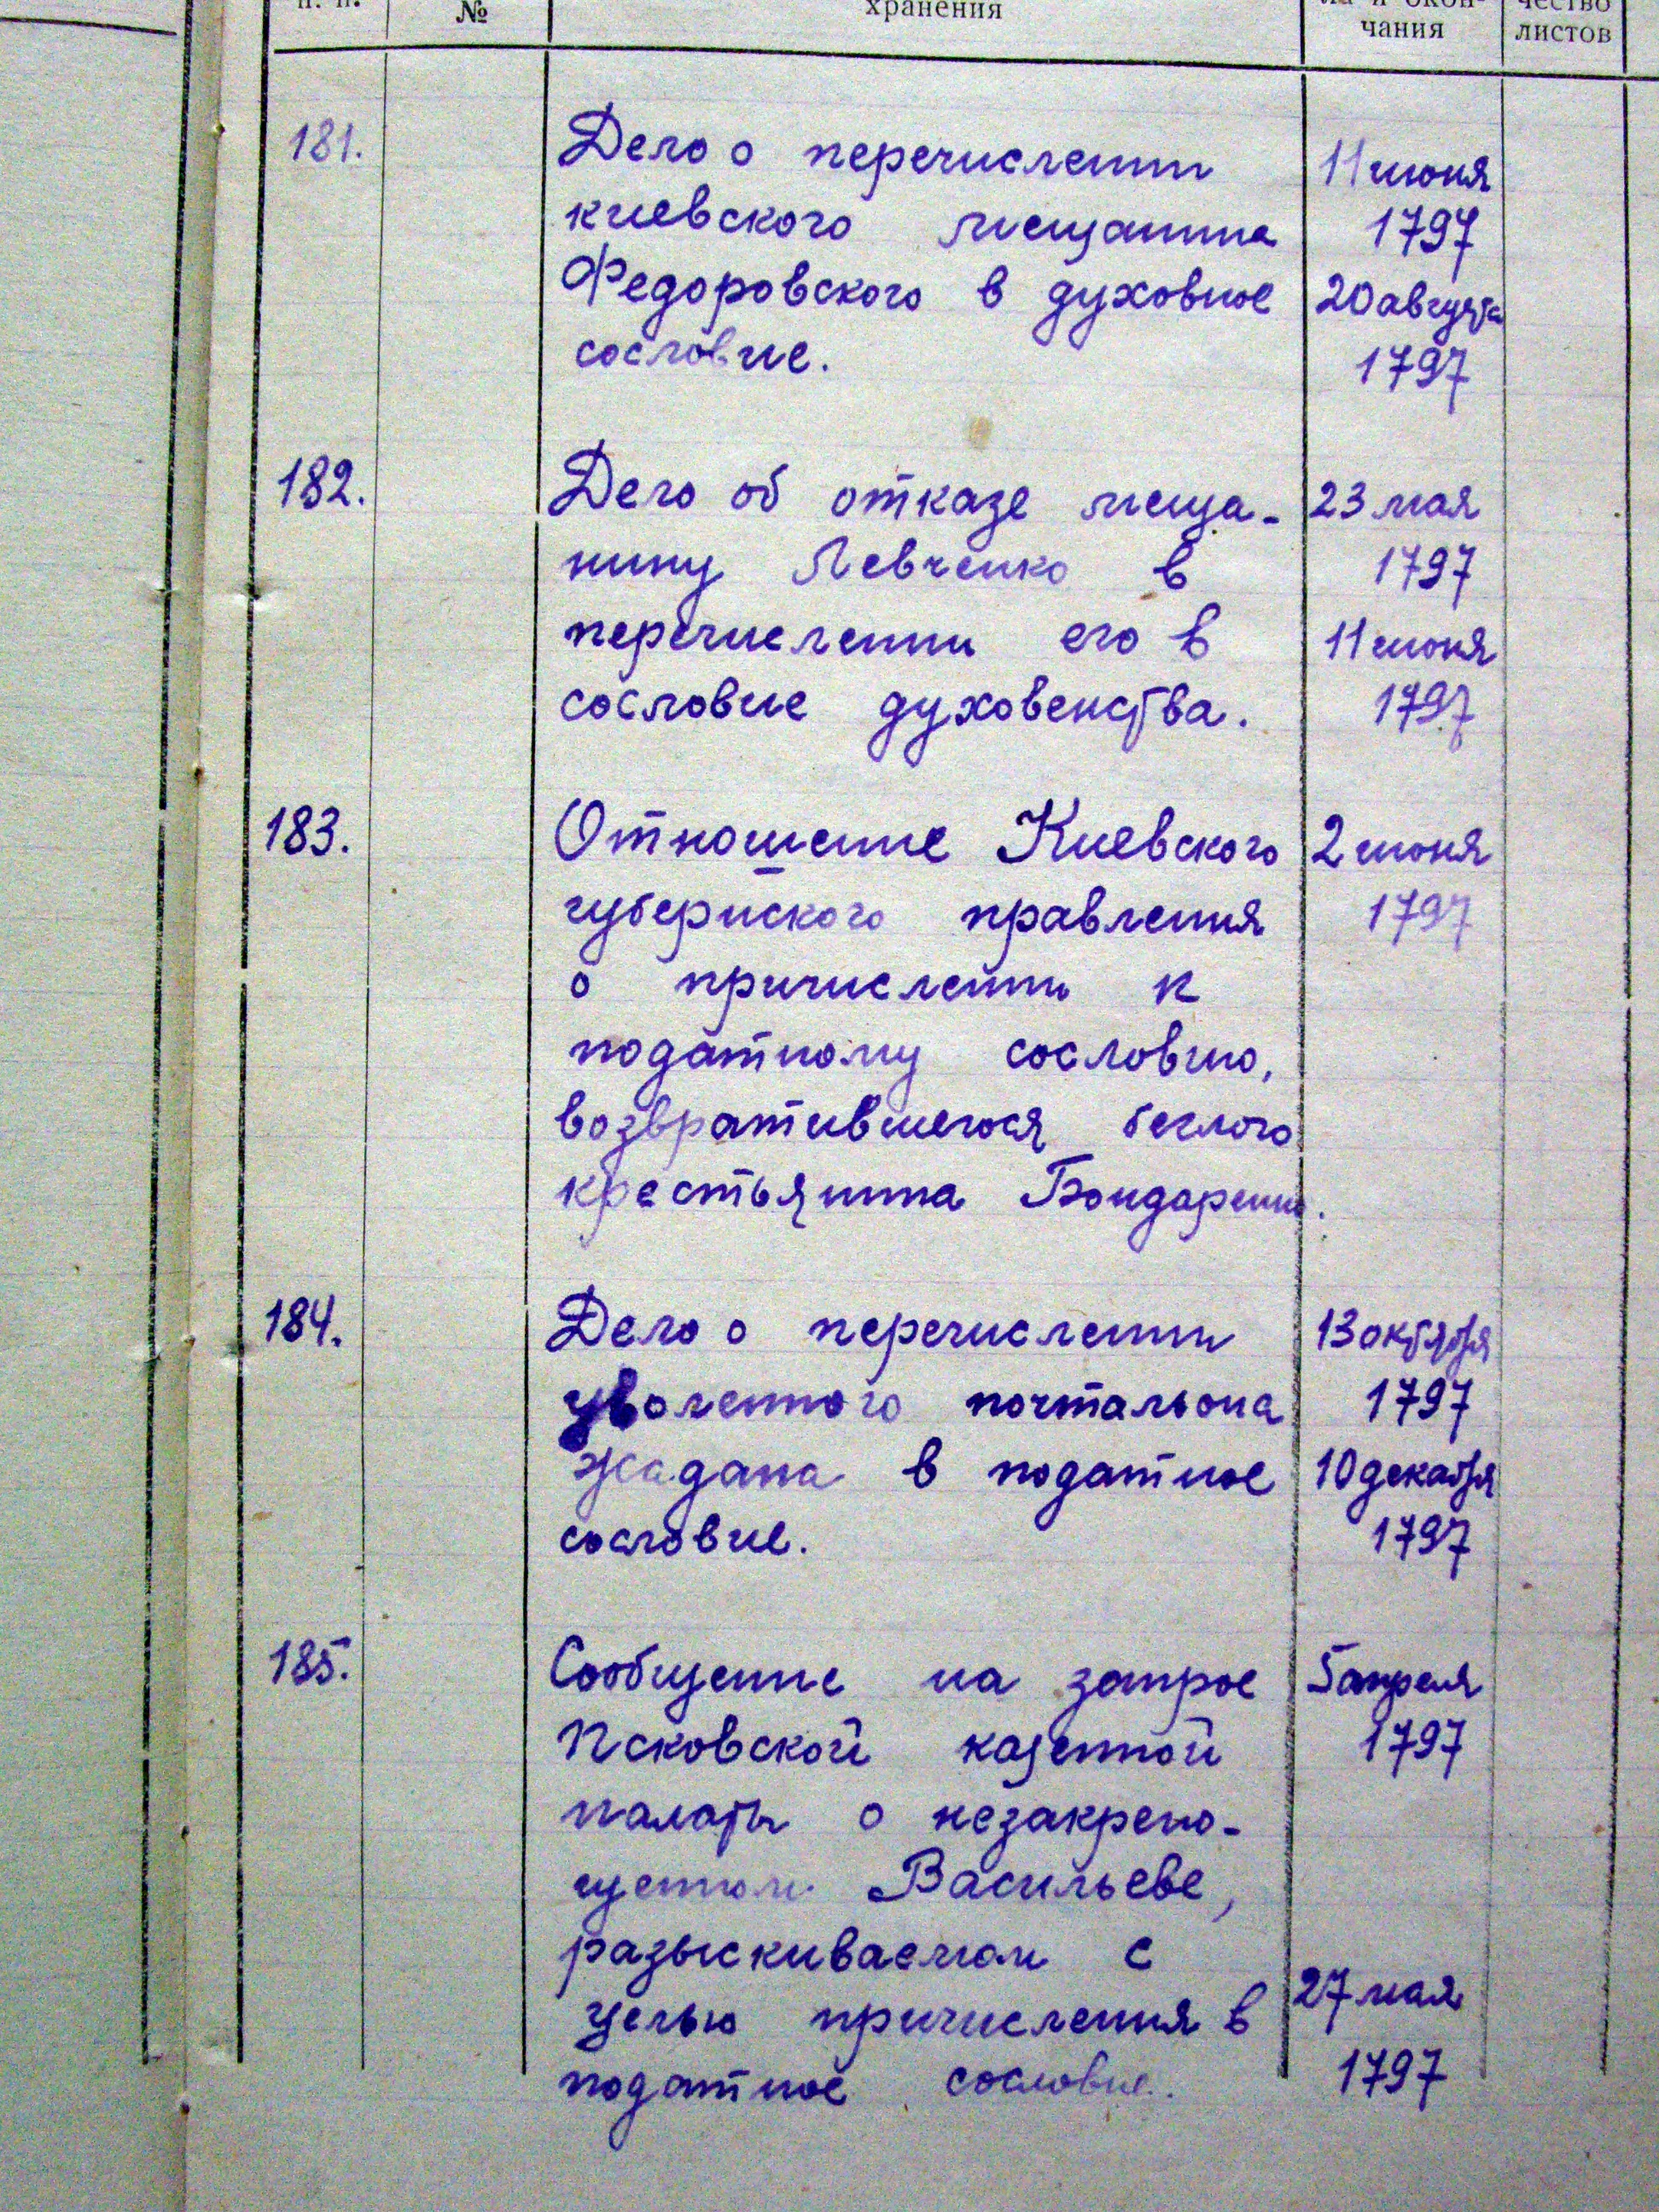 п. п.
№
хранения
ла и окон-
чания
чество
листов
181.
Дело о перечислении
киевского мещанина
Федоровского в духовное
сословие.
11 июня
1797
20 августа
1797
182.
Дело об отказе меща-
нину Левченко в
перечислении его в
сословие духовенства.
23 мая
1797
11 июня
1797
183.
Отношение Киевского
губернского правления
о причислении к
податному сословию,
возвратившегося беглого
крестьянина Бондаренко.
2 июня
1797
184.
Дело о перечислении
уволенного почтальона
Жадана в податное
сословие.
13 октября
1797
10 декабря
1797
185.
Сообщение на запрос
Псковской казенной
палаты о незакрепо-
щенном Васильеве,
разыскиваемом с
целью причисления в
податное сословие.
5 апреля
1797
27 мая
1797